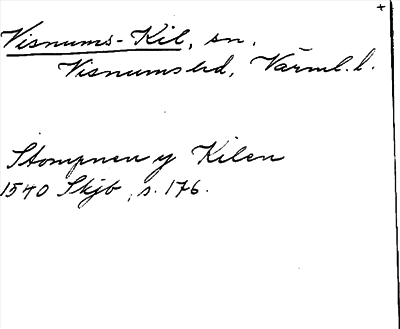 +
Visnums-Kil, sn.
Visnums hd, Värml. l.
Stompnen y Kilen
1540 Skjb, s. 176.